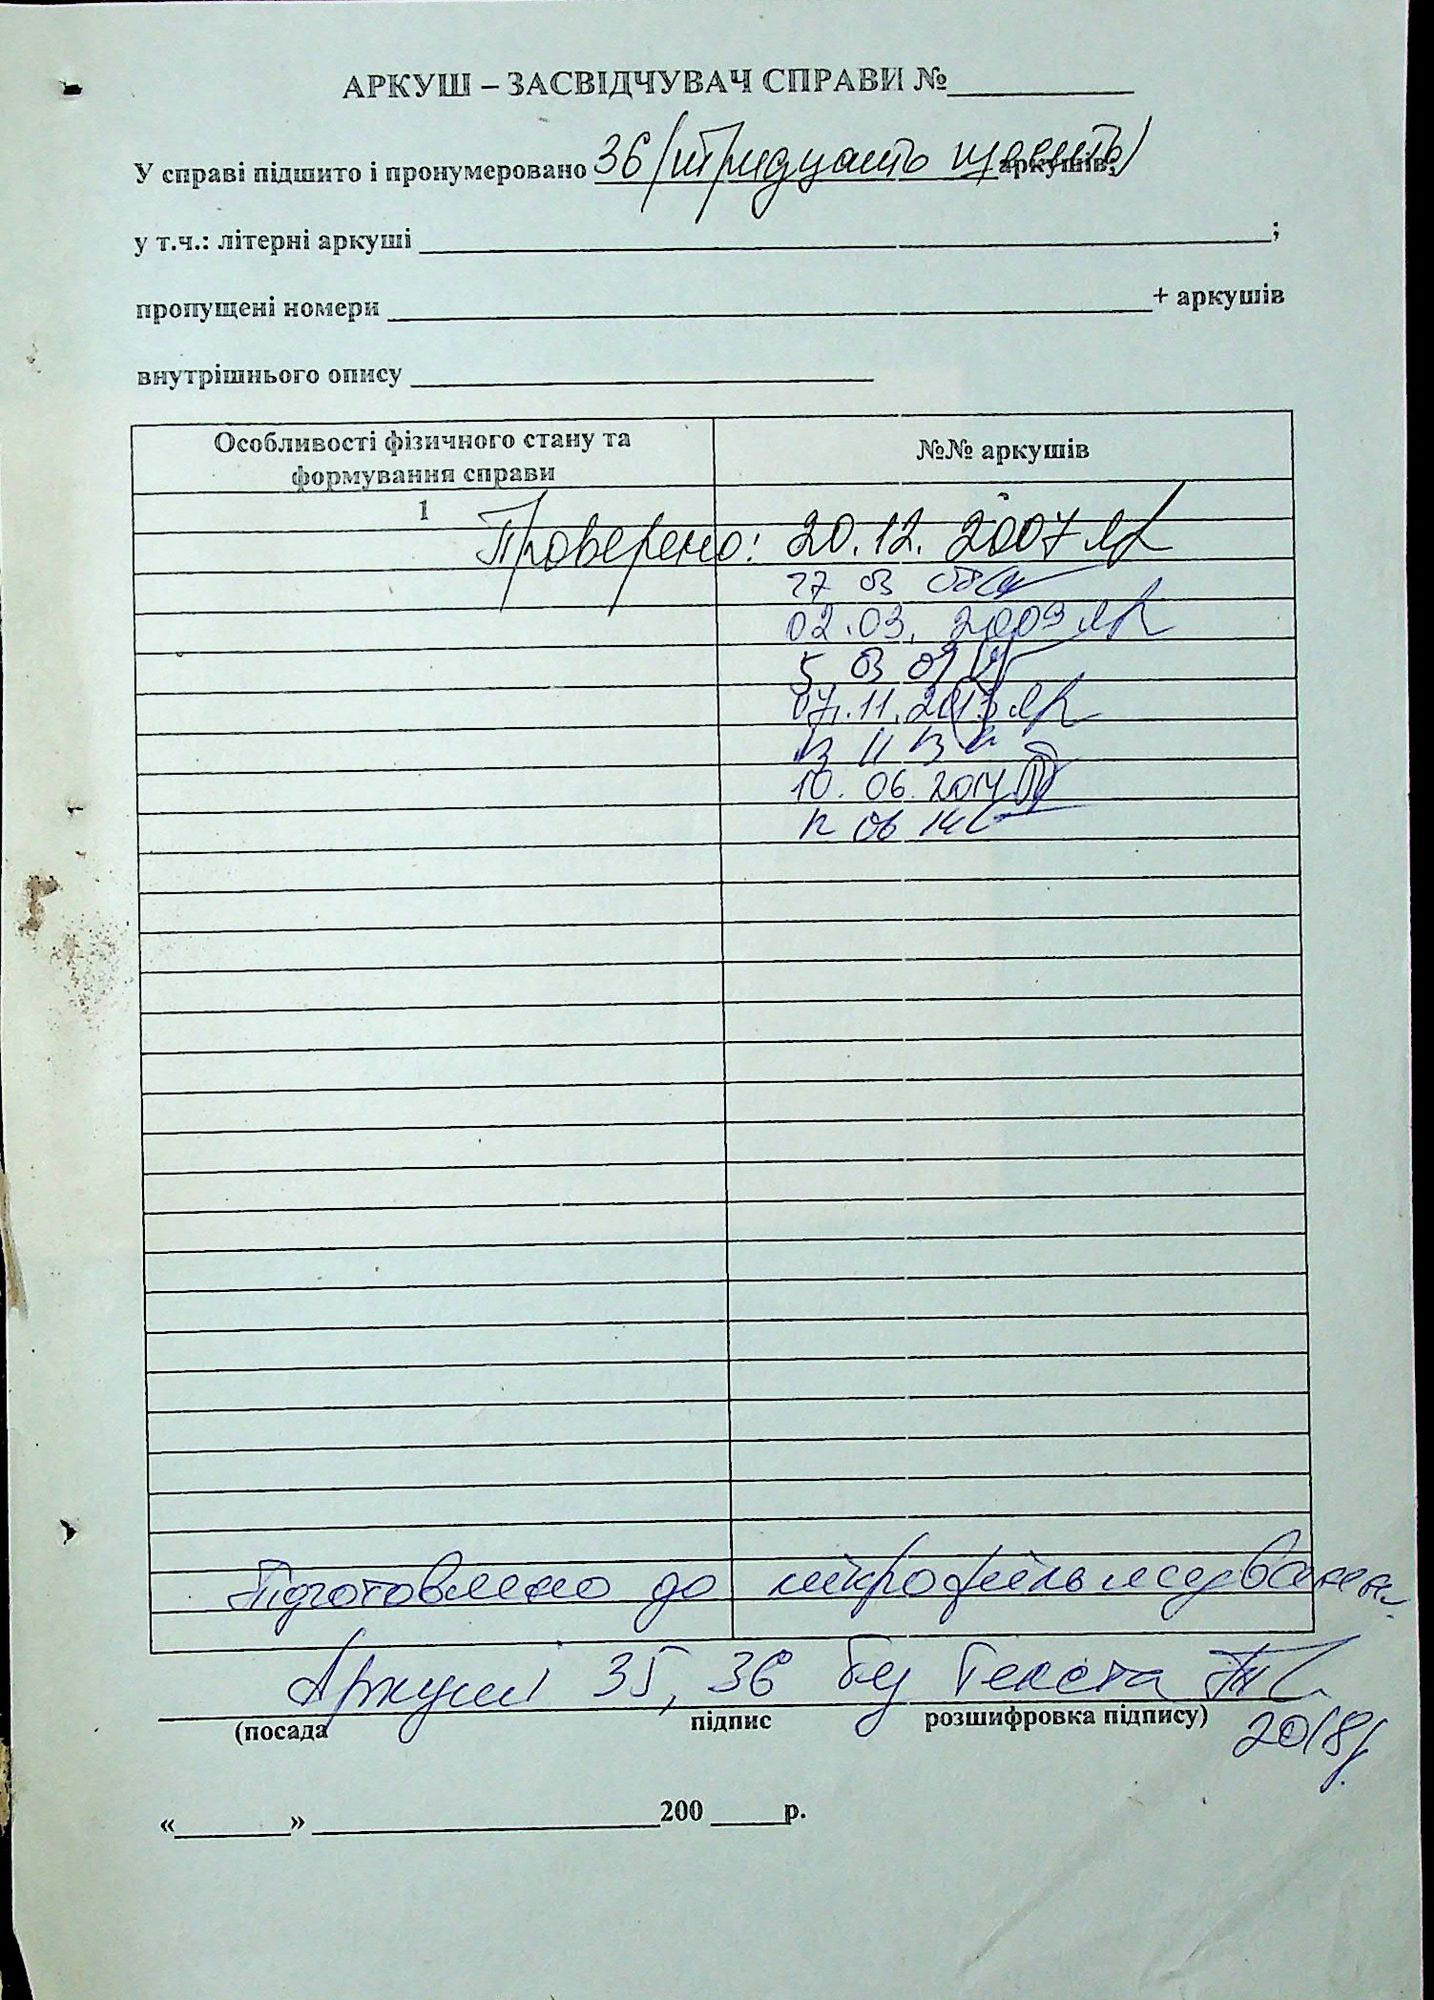 АРКУШ – ЗАСВІДЧУВАЧ СПРАВИ №__________
У справі підшито і пронумеровано 36 (тридцать шесть) аркушів;
у т.ч.: літерні аркуші ____________________;
пропущені номери ____________________+ аркушів
внутрішнього опису ____________________
Особливості фізичного стану та формування справи
№№ аркушів
1
Проверено: 20.12.2007
27 03 08
02.03.2009
5 03 09
07.11.2013
13 11 13
10.06.2014
12 06 14
Підготовлено до мікрофільмування.
Аркуші 35, 36 без текста
(посада підпис розшифровка підпису)
2018р.
«_______» ____________________200 _____р.